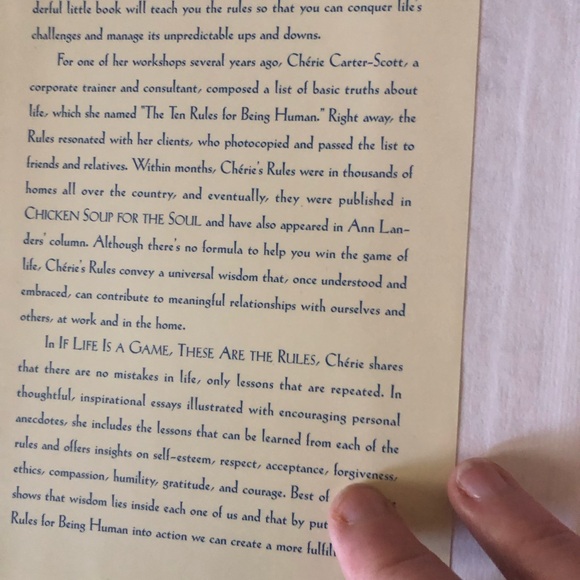 derful little book will teach you the rules so that you can conquer life's
challenges and manage its unpredictable ups and downs.
For one of her workshops several years ago, Chérie Carter-Scott, a
corporate trainer and consultant, composed a list of basic truths about
life, which she named "The Ten Rules for Being Human." Right away, the
Rules resonated with her clients, who photocopied and passed the list to
friends and relatives. Within months, Chérie's Rules were in thousands of
homes all over the country, and eventually, they were published in
CHICKEN SOUP FOR THE SOUL and have also appeared in Ann Lan-
ders' column. Although there's no formula to help you win the game of
life, Chérie's Rules convey a universal wisdom that, once understood and
embraced, can contribute to meaningful relationships with ourselves and
others, at work and in the home.
In IF LIFE IS A GAME, THESE ARE THE RULES, Chérie shares
that there are no mistakes in life, only lessons that are repeated. In
thoughtful, inspirational essays illustrated with encouraging personal
anecdotes, she includes the lessons that can be learned from each of the
rules and offers insights on self-esteem, respect, acceptance, forgiveness,
ethics, compassion, humility, gratitude, and courage. Best of
shows that wisdom lies inside each one of us and that by put
Rules for Being Human into action we can create a more